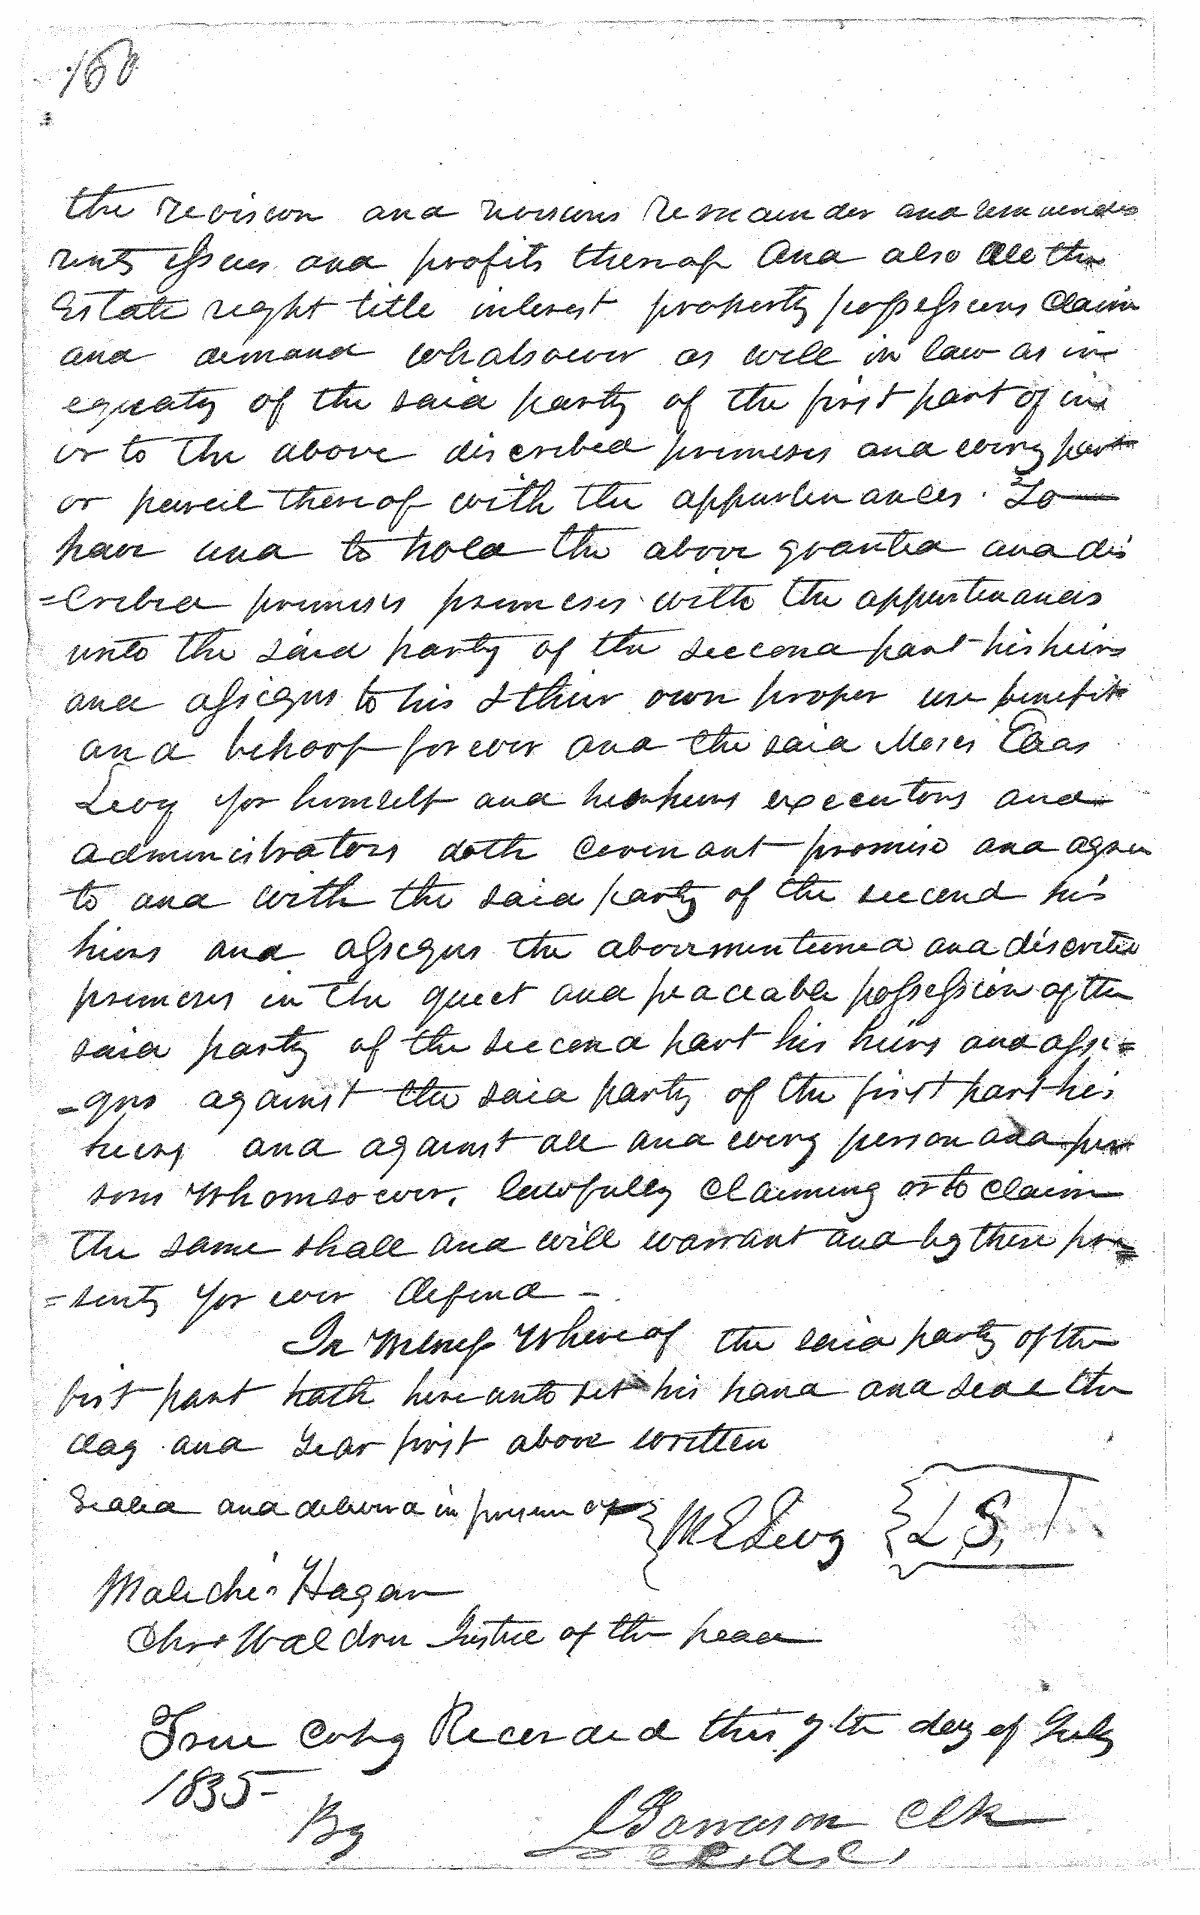 160
the revision and revisions remainder and remainders
rents issues and profits thereof And also All the
Estate right title interest property possessions Claim
and demand whatsoever as well in law as in
equaty of the said party of the first part of in
or to the above discribed premises and every part
or parcil thereof with the appurtenances. To
have and to hold the above granted and dis
=cribed premises premeses with the appurtenances
unto the said party of the seccond part his heirs
and assigns to his & their own proper use benefit
and behoof forever and the said Moses Elias
Levy for himself and his heirs executors and
administrators doth covenant promise and agree
to and with the said party of the seccond his
heirs and assigns the abovementioned and discribed
premeses in the quiet and peaceable possession of the
said party of the seccond part his heirs and assi=
=gns against the said party of the first part his
heirs and against all and every person and per
sons whomsoever. lawfully claiming or to claim
the same shall and will warrant and by these pre
=sents for ever defend –
In Witness Whereof the said party of the
first part hath hereunto set his hand and seal the
day and year first above written
Sealed and delivered in presence of M E Levy L.S.
Malichi Hagan
Chs Waldron Justice of the peace
True Copy Recorded this 7th day of July
1835–
By Garrason Clk